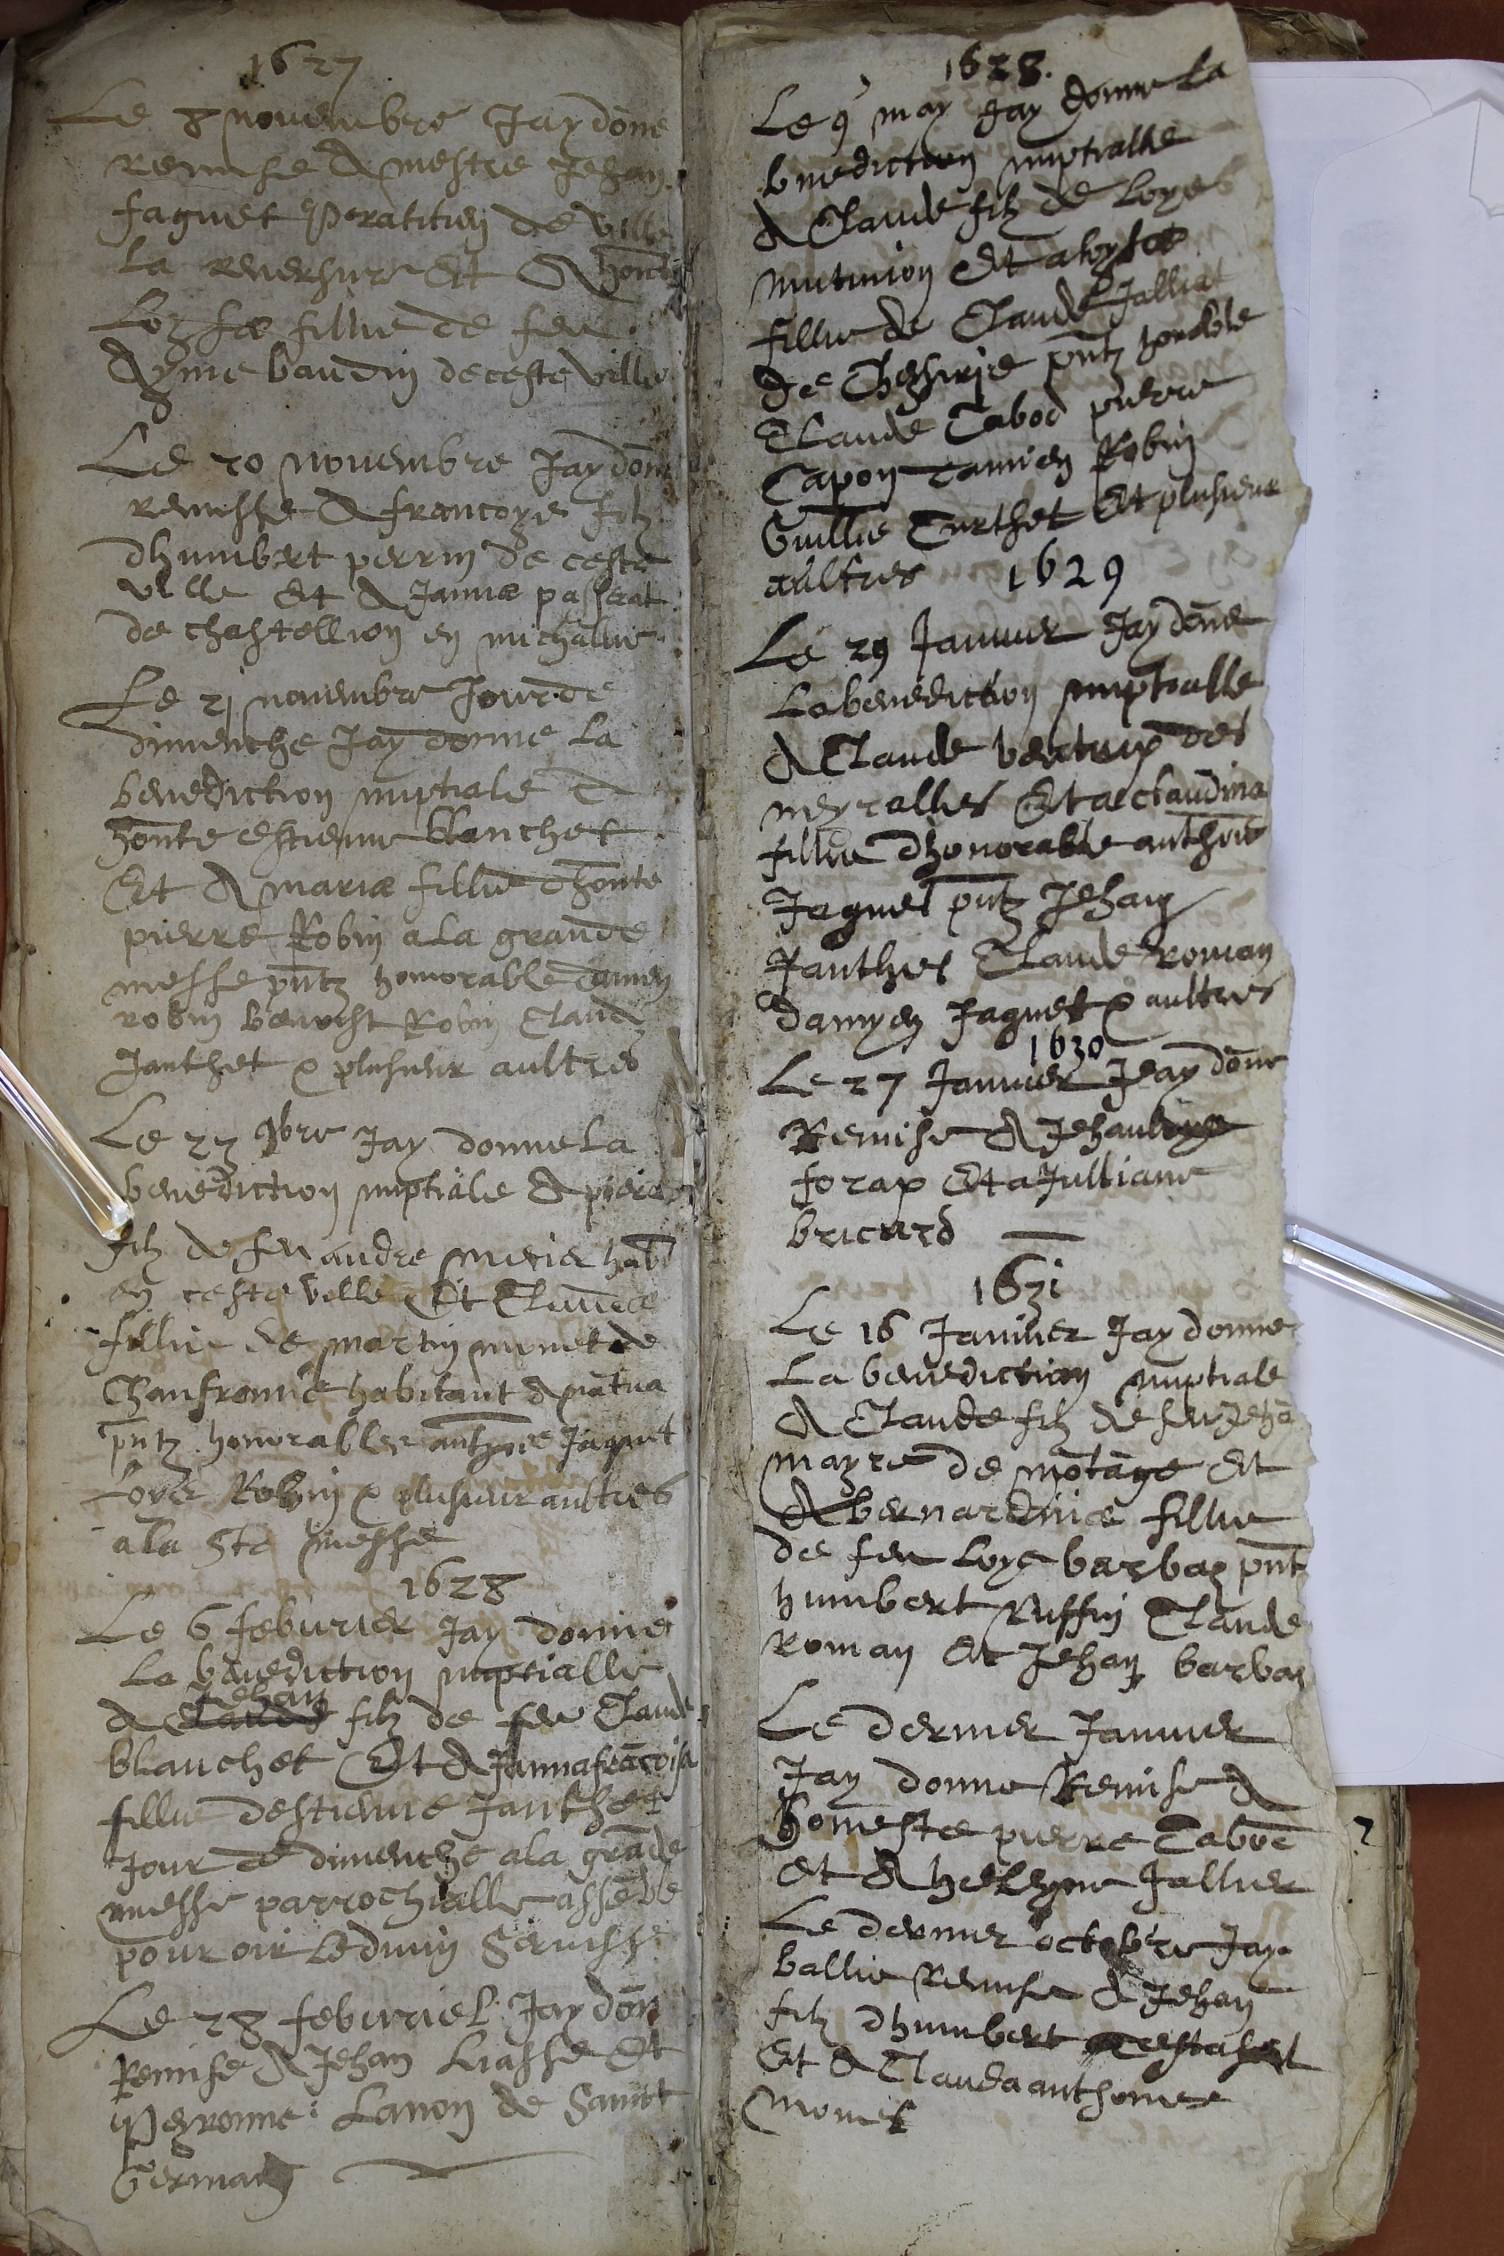 1627
Le 8 novembre Jay done
remise A mestre Jehan
faguet praticien de ville
la reversure Et A honte
Loyse fillie de feu
Ayme baudin de ceste ville
Le 20 novembre Jay donne
remisse A francoys filz
dhumbert perrin de ceste
ville Et A Janna passerat
de chastellion en michallie
Le 21 novembre Jour de
dimenche Jay donne la
benediction nuptiale A
honte estienne blanchet
Et A maria fillie dhonte
pierre Robin a la grande
messe pntz honnorable damien
robin benoist Robin Claude
Janthet & plusieur aultres
Le 27 9bre Jay donne la
benediction nuptiale A pierre
filz de feu andre murier hab
en ceste ville Et Clauda
fillie de martin monet de
Chanfromie habitant A nantua
pntz honnorables anthoine Jaquet
Loys Robin & plusieur aultres
a la Ste messe
1628
Le 6 feburier Jay donne
la benediction nuptialle
A Jehan filz de feu Claude
blanchet Et A Jannafrancoisa
fillie destienne Janthet
Jour de dimenche a la grade
messe parrochialle assemble
pour oir le divin servisse
Le 28 feburier Jay don
Remise A Jehan Liasse Et
Peyronne Lanon de Sainct
Germain
1628.
Le 9 may Jay donne La
bnediction nuptialle
A Claude filz de Loyes
mutinion Et a loysa
fillie de Claude Jalliat
de Chezirie pntz honorable
Claude Tabod pierre
Capon damien Robin
Guillie Curthet Et plusieur
aultres 1629
Le 29 Janvier Jay done
La benediction nuptialle
A Claude beatrix des
neyralles Et a claudina
fillie dhonorable anthoine
Jaquet pntz Jehan
Janthet Claude roman
damyen Jaguet & aultres
1630
Le 27 Janvier Jeay donne
Remise A Jehan loys
forax Et a Julliane
bricard
1631
Le 16 Janvier Jay donne
La benediction nuptiale
A Claude filz de feu Jeha
mayre de motage Et
A bernardina fillie
de feu Loys barbaz pnt
humbert Ruffin Claude
Roman Et Jehan barbaz
Le dernier Janvier
Jay donne Remise A
honneste pierre Tabod
Et A helleyne Jallier
Le dernier octobre Jay
ballie Remise A Jehan
filz dhumbert
Et A Clauda anthonia
monet